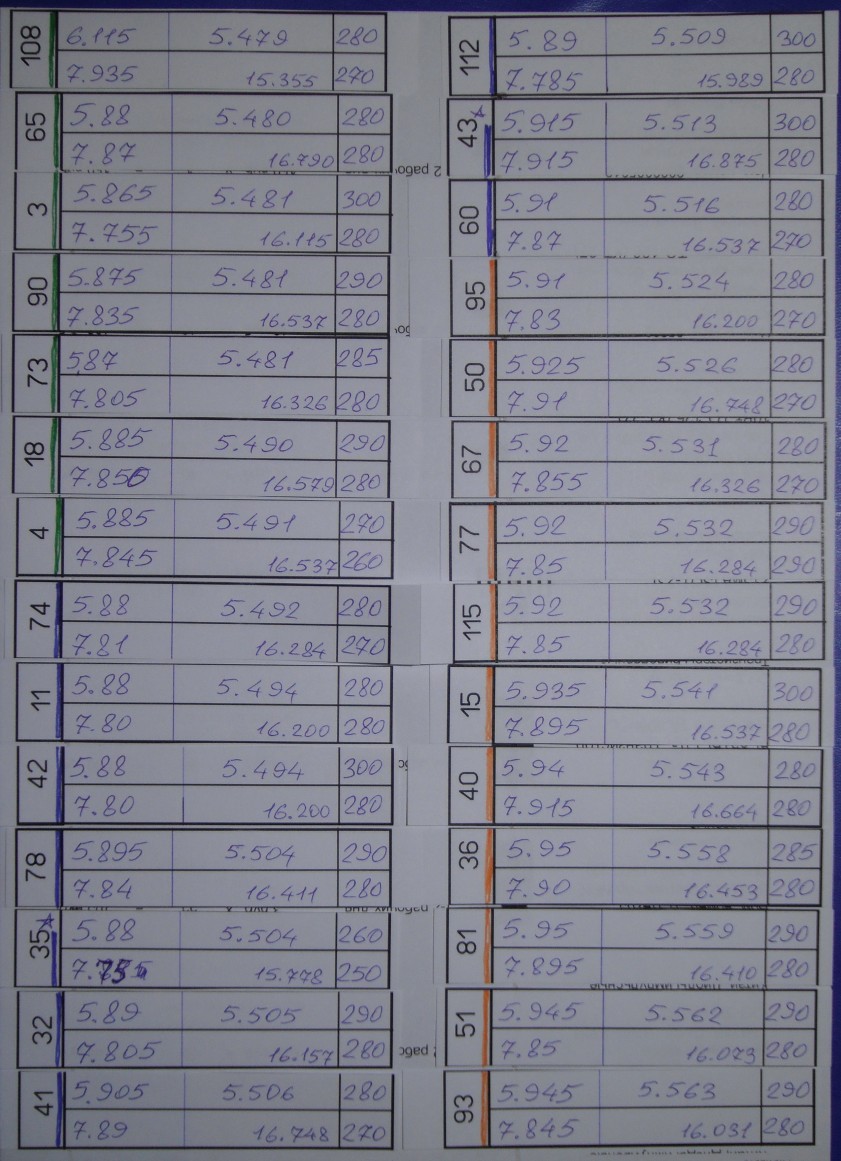 108 6.115 5.479 280
7.935 15.355 270
65 5.88 5.480 280
7.87 16.790 280
3 5.865 5.481 300
7.755 16.115 280
90 5.875 5.481 290
7.835 16.537 280
73 587 5.481 285
7.805 16.326 280
18 5.885 5.490 290
7.850 16.579 280
4 5.885 5.491 270
7.845 16.537 260
74 5.88 5.492 280
7.81 16.284 270
11 5.88 5.494 280
7.80 16.200 280
42 5.88 5.494 300
7.80 16.200 280
78 5.895 5.504 290
7.84 16.411 280
35* 5.88 5.504 260
15.778 250
32 5.89 5.505 290
7.805 16.157 280
41 5.905 5.506 280
7.89 16.748 270
112 5.89 5.509 300
7.785 15.989 280
43* 5.915 5.513 300
7.915 16.875 280
60 5.91 5.516 280
7.87 16.537 270
95 5.91 5.524 280
7.83 16.200 270
50 5.925 5.526 280
7.91 16.748 270
67 5.92 5.531 280
7.855 16.326 270
77 5.92 5.532 290
7.85 16.284 290
115 5.92 5.532 290
7.85 16.284 280
15 5.935 5.541 300
7.895 16.537 280
40 5.94 5.543 280
7.915 16.664 280
36 5.95 5.558 285
7.90 16.453 280
81 5.95 5.559 290
7.895 16.410 280
51 5.945 5.562 290
7.85 16.073 280
93 5.945 5.563 290
7.845 16.031 280